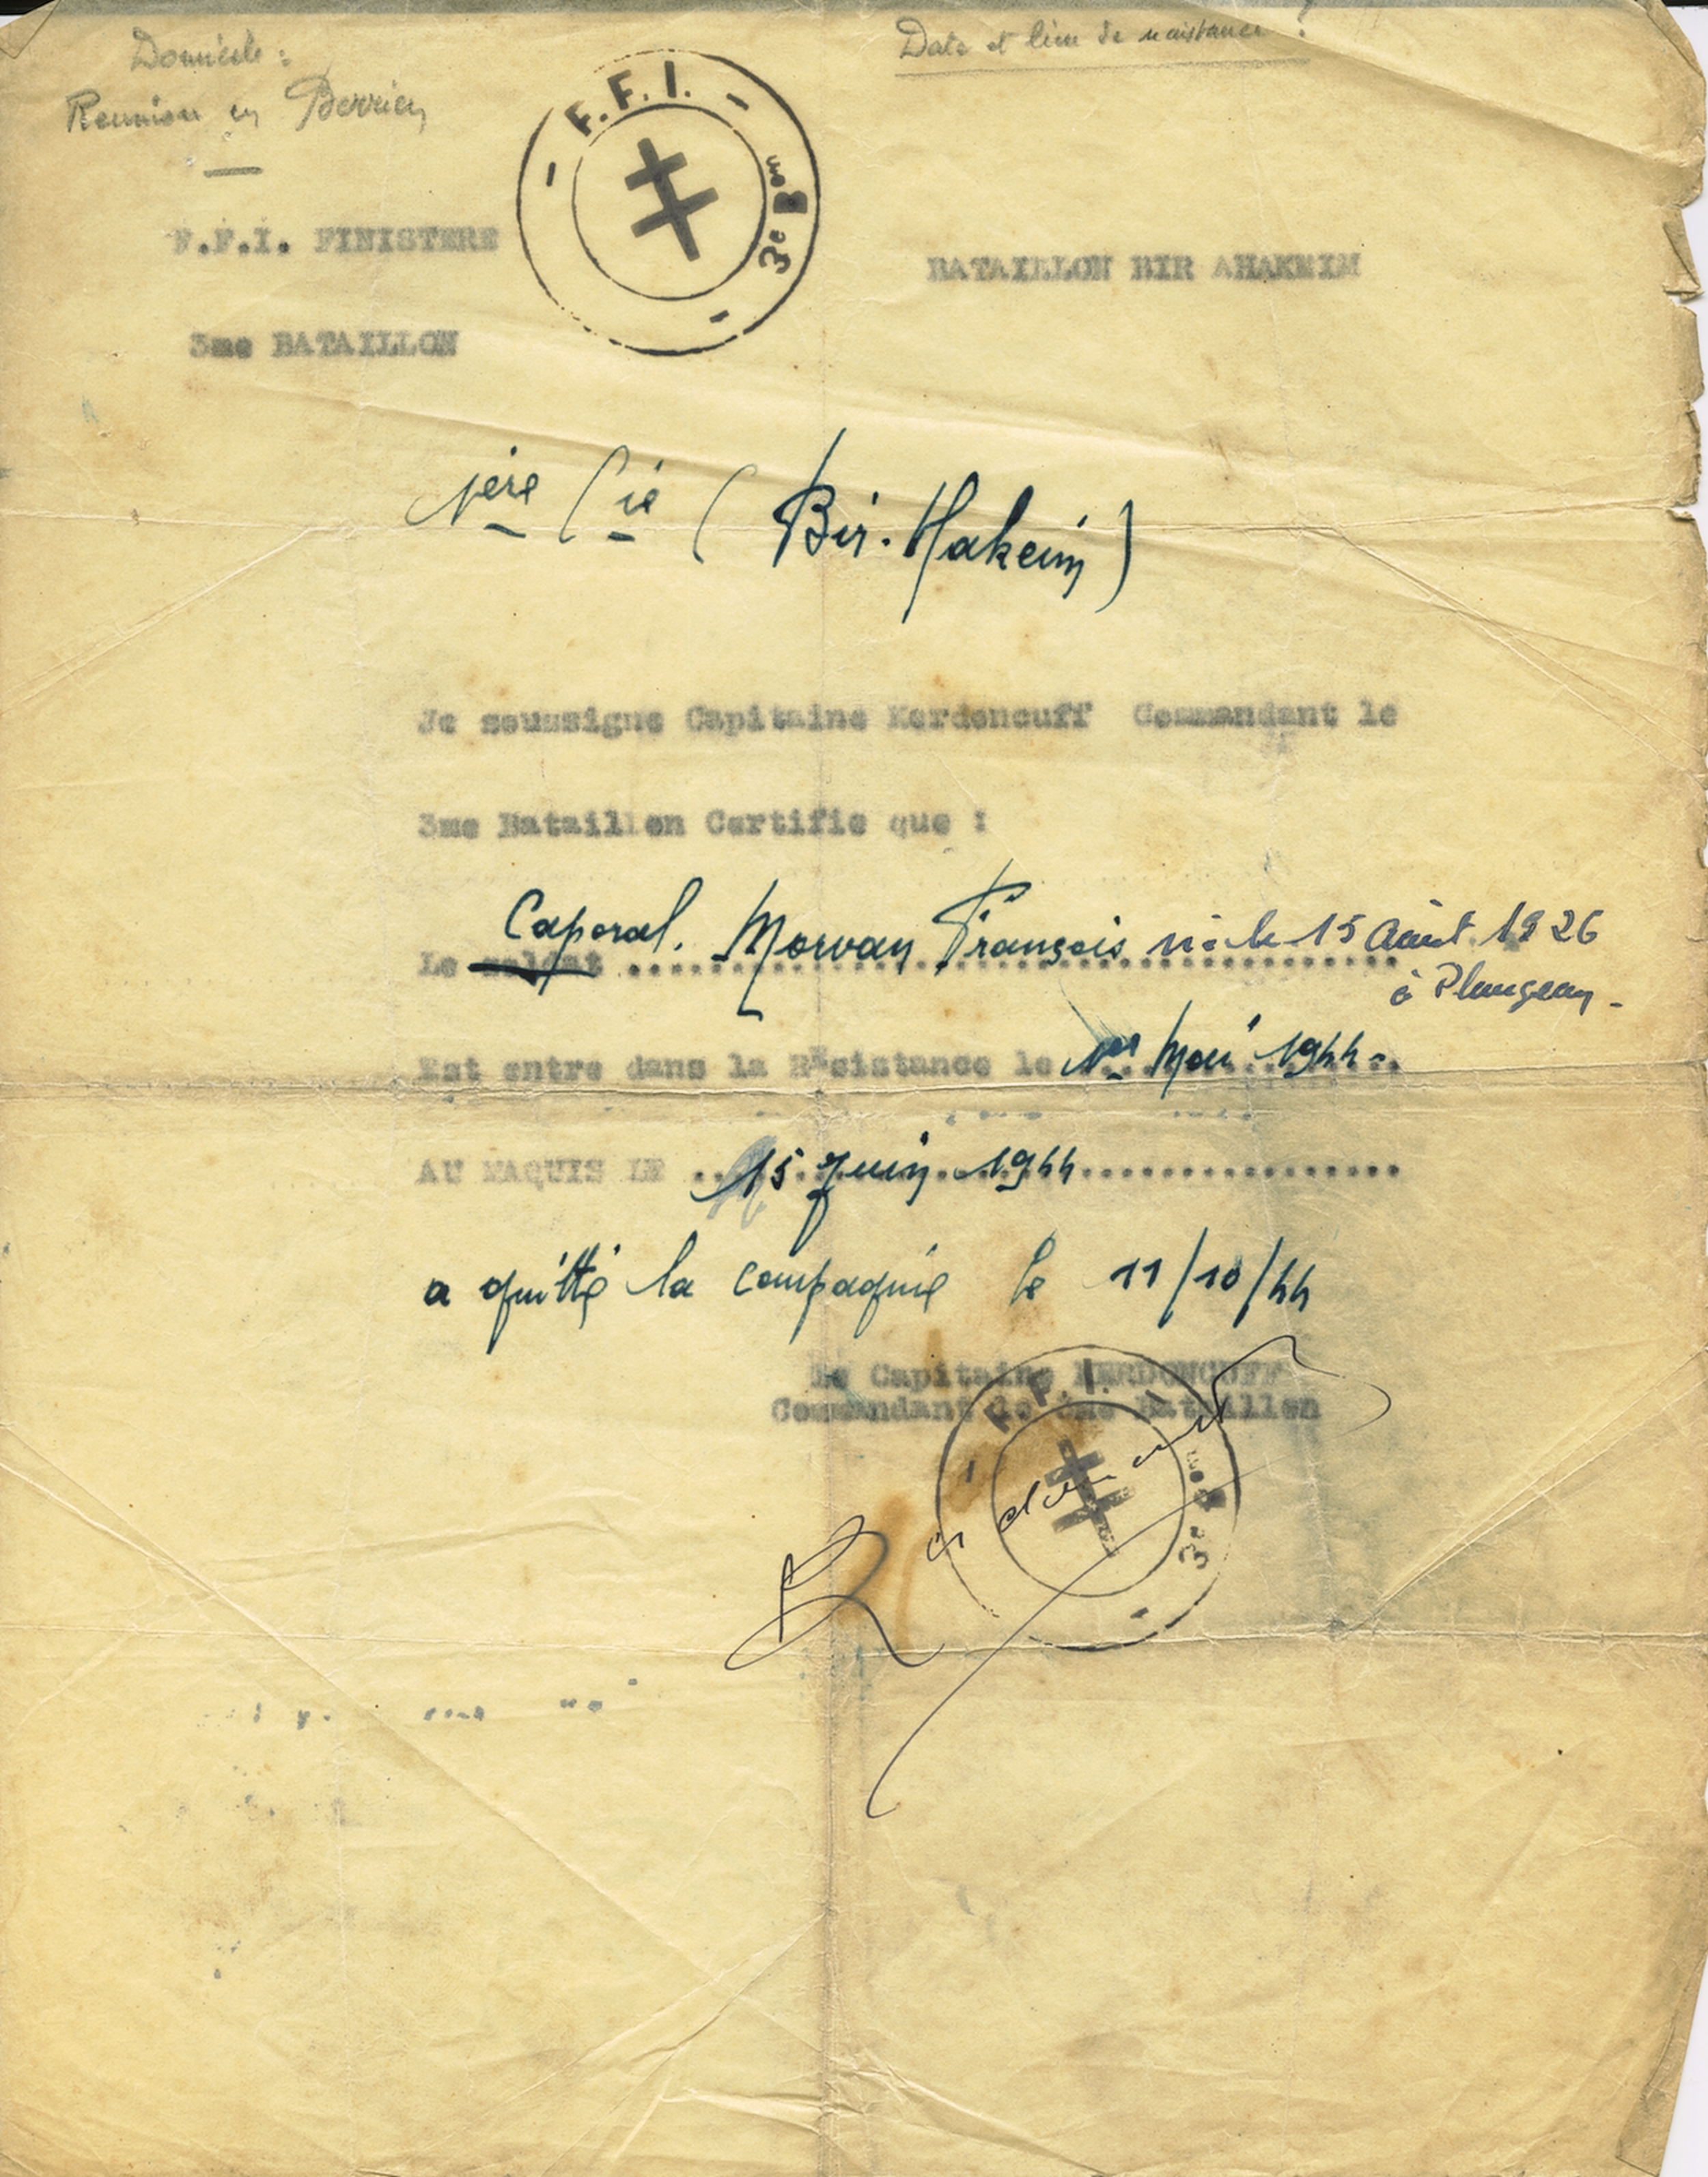 Domicile :
Reunion en Berrien
Date et lieu de naissance ?
F.F.I.
3e Bon
F.F.I. FINISTERE
BATAILLON BIR AHAKEIM
3me BATAILLON
1ère Cie ( Bir-Hakeim )
Je soussigne Capitaine Kerdoncuff Commandant le
3me Bataillon Certifie que :
Caporal. Morvan François né le 15 Août 1926
Le soldat ........................................
à Plougean -
Est entre dans la Résistance le 1er Mai 1944 -
AU MAQUIS LE .. 15 Juin 1944 ................
a quitté la compagnie le 11/10/44
Le Capitaine KERDONCUFF
Commandant le 3me Bataillon
F.F.I.
3e Bon